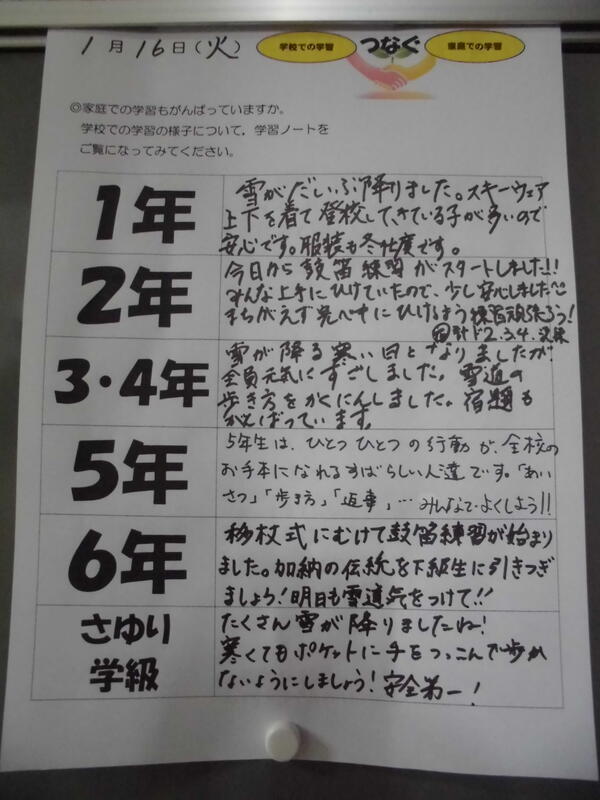 1月16日(火)
学校での学習
つなぐ
家庭での学習
◎家庭での学習もがんばっていますか。
学校での学習の様子について，学習ノートを
ご覧になってみてください。
1年
雪がだいぶ降りました。スキーウェア
上下を着て登校してきている子が多いので
安心です。服装も冬仕度です。
2年
今日から鼓笛練習がスタートしました!!
みんな上手にひけていたので、少し安心しました
まちがえず完ぺきにひけるよう練習頑張ろう!
計ド2.3.4.
3・4年
雪が降る寒い日となりましたが
全員元気にすごしました。雪道の
歩き方をかくにんしました。宿題も
がんばっています。
5年
5年生は、ひとつひとつの行動が、全校の
お手本になれるすばらしい人達です。「あい
さつ」「歩き方」「返事」…みんなでよくしよう!!
6年
移杖式にむけて鼓笛練習が始まり
ました。加納の伝統を下級生に引きつぎ
ましょう!明日も雪道気をつけて!!
さゆり
学級
たくさん雪が降りましたね!
寒くてもポケットに手をつっこんで歩か
ないようにしましょう!安全第一!